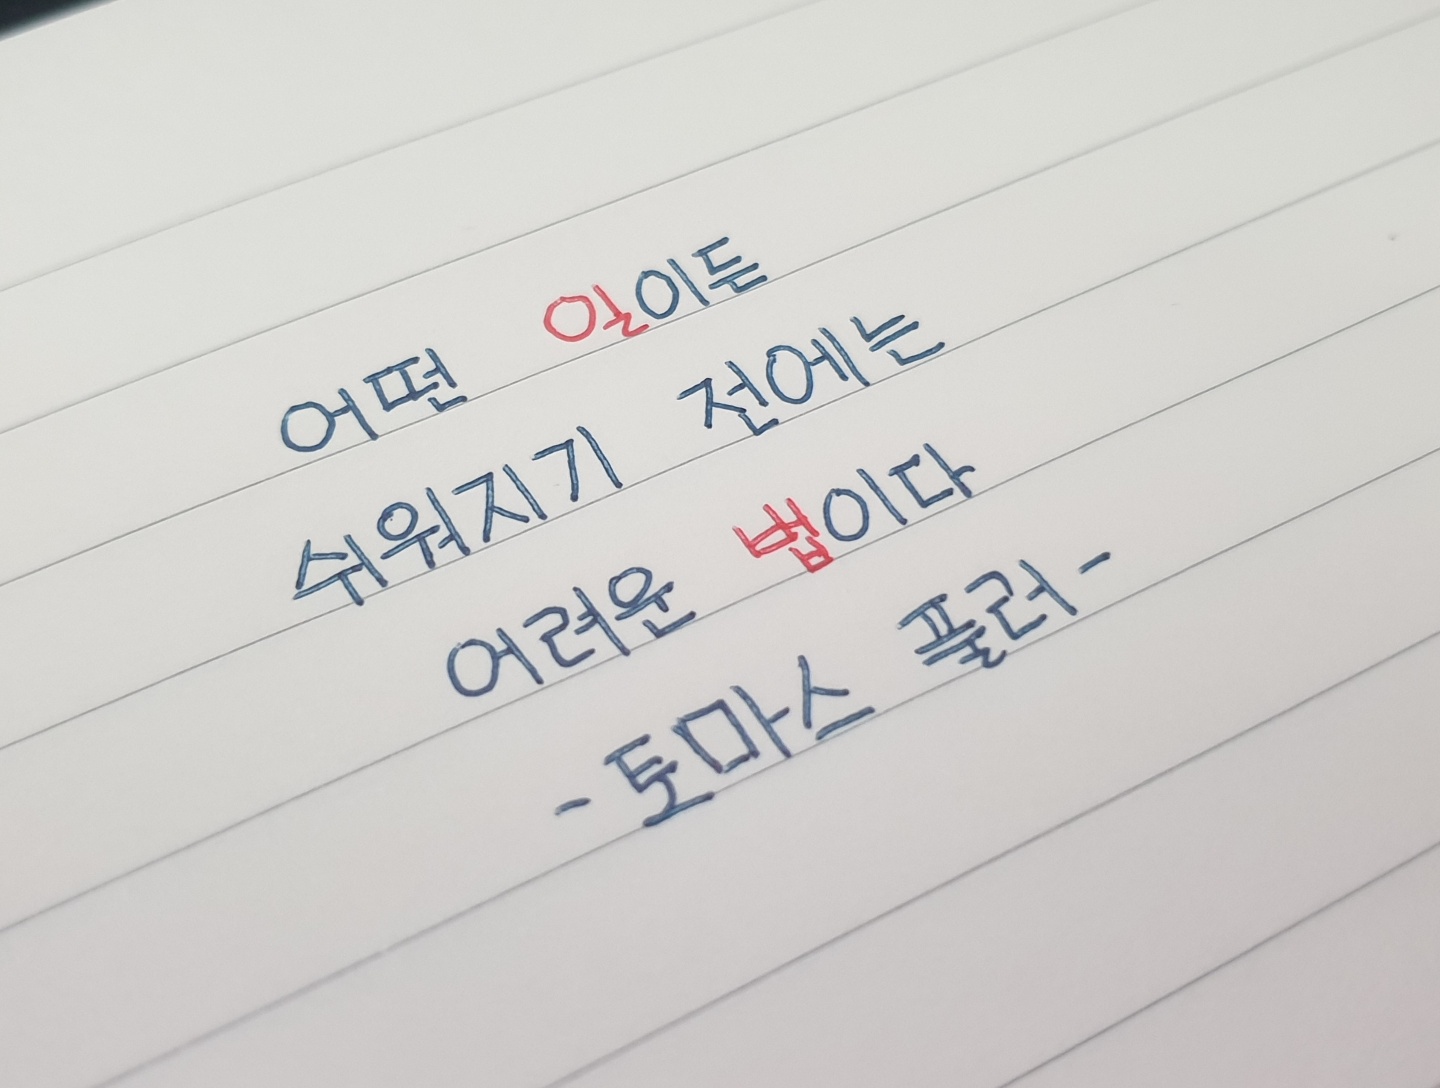 어떤 일이든
쉬워지기 전에는
어려운 법이다
- 토마스 플러 -